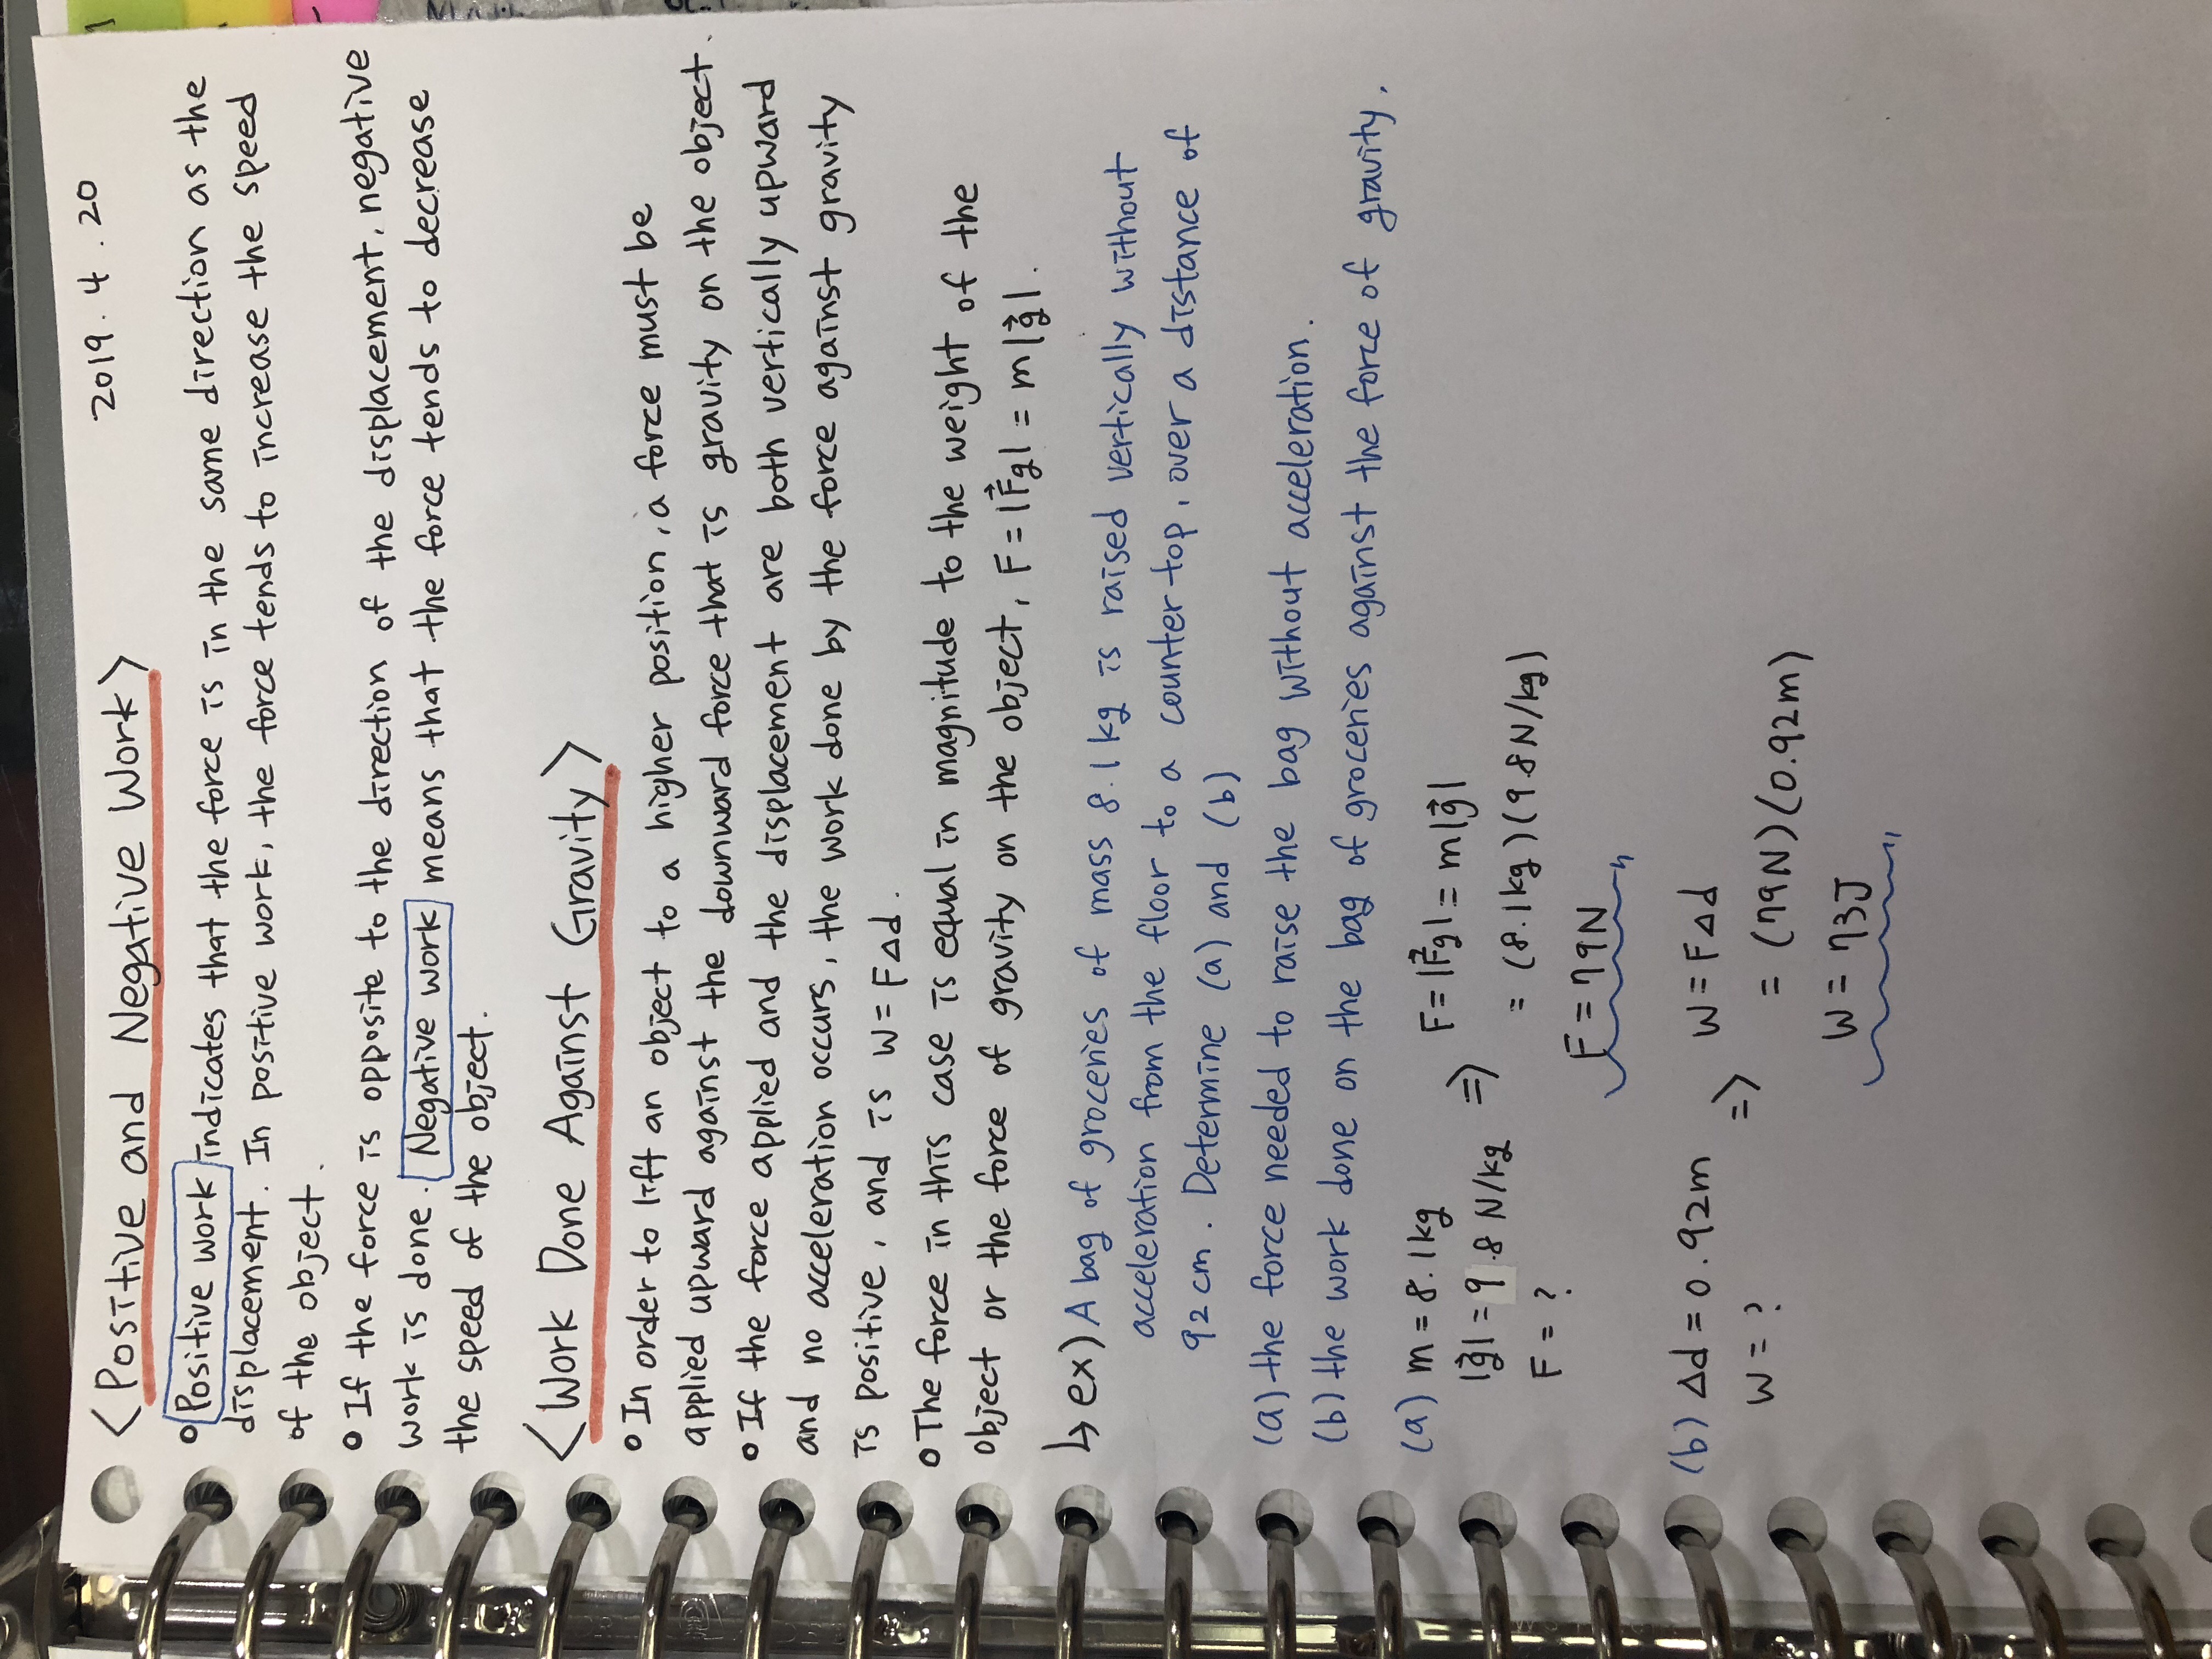 2019. 4. 20
<Positive and Negative Work>
Positive work indicates that the force is in the same direction as the
displacement. In positive work, the force tends to increase the speed
of the object.
If the force is opposite to the direction of the displacement, negative
work is done. Negative work means that the force tends to decrease
the speed of the object.
<Work Done Against Gravity>
In order to lift an object to a higher position, a force must be
applied upward against the downward force that is gravity on the object.
If the force applied and the displacement are both vertically upward
and no acceleration occurs, the work done by the force against gravity
is positive, and is W = FΔd.
The force in this case is equal in magnitude to the weight of the
object or the force of gravity on the object, F = |F⃗g| = m|g⃗|.
↳ ex) A bag of groceries of mass 8.1kg is raised vertically without
acceleration from the floor to a counter top, over a distance of
92 cm. Determine (a) and (b)
(a) the force needed to raise the bag without acceleration.
(b) the work done on the bag of groceries against the force of gravity.
(a) m = 8.1kg ⇒ F = |F⃗g| = m|g⃗|
|g⃗| = 9.8 N/kg = (8.1kg)(9.8N/kg)
F = ? F = 79N
(b) Δd = 0.92m ⇒ W = FΔd
W = ? = (79N)(0.92m)
W = 73J